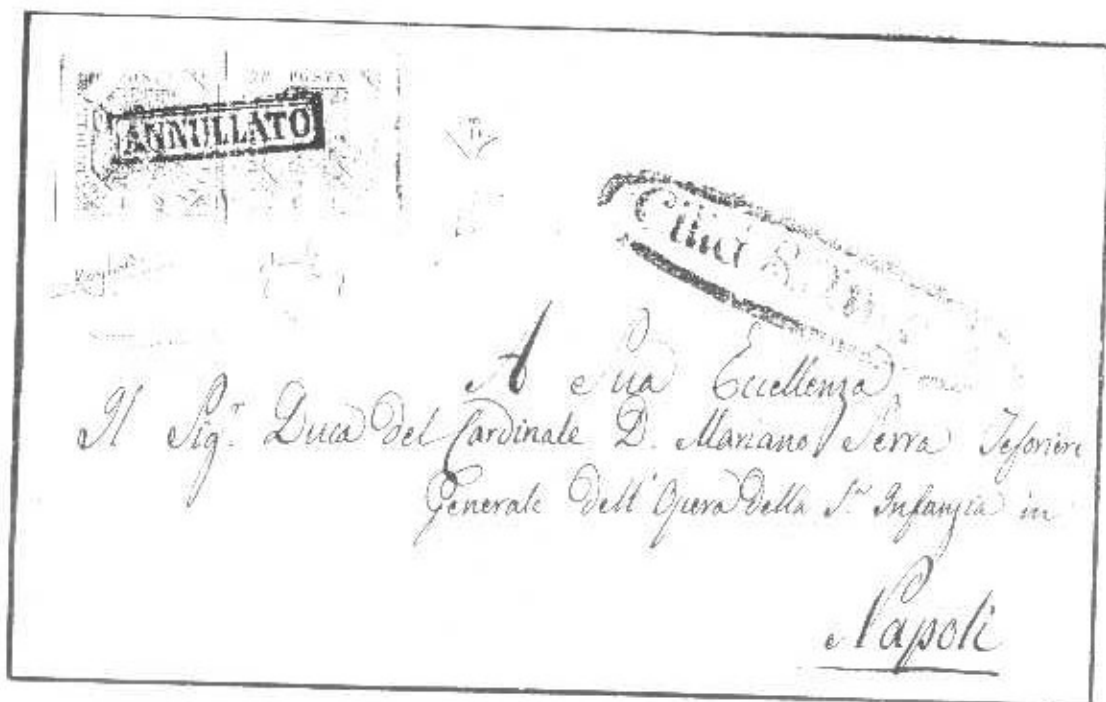 ANNULLATO
Città S.
A Sua Eccellenza
Il Sig.r Duca del Cardinale D. Mariano Serra Tesoriere
Generale dell' Opera della S.ta Infanzia in
Napoli